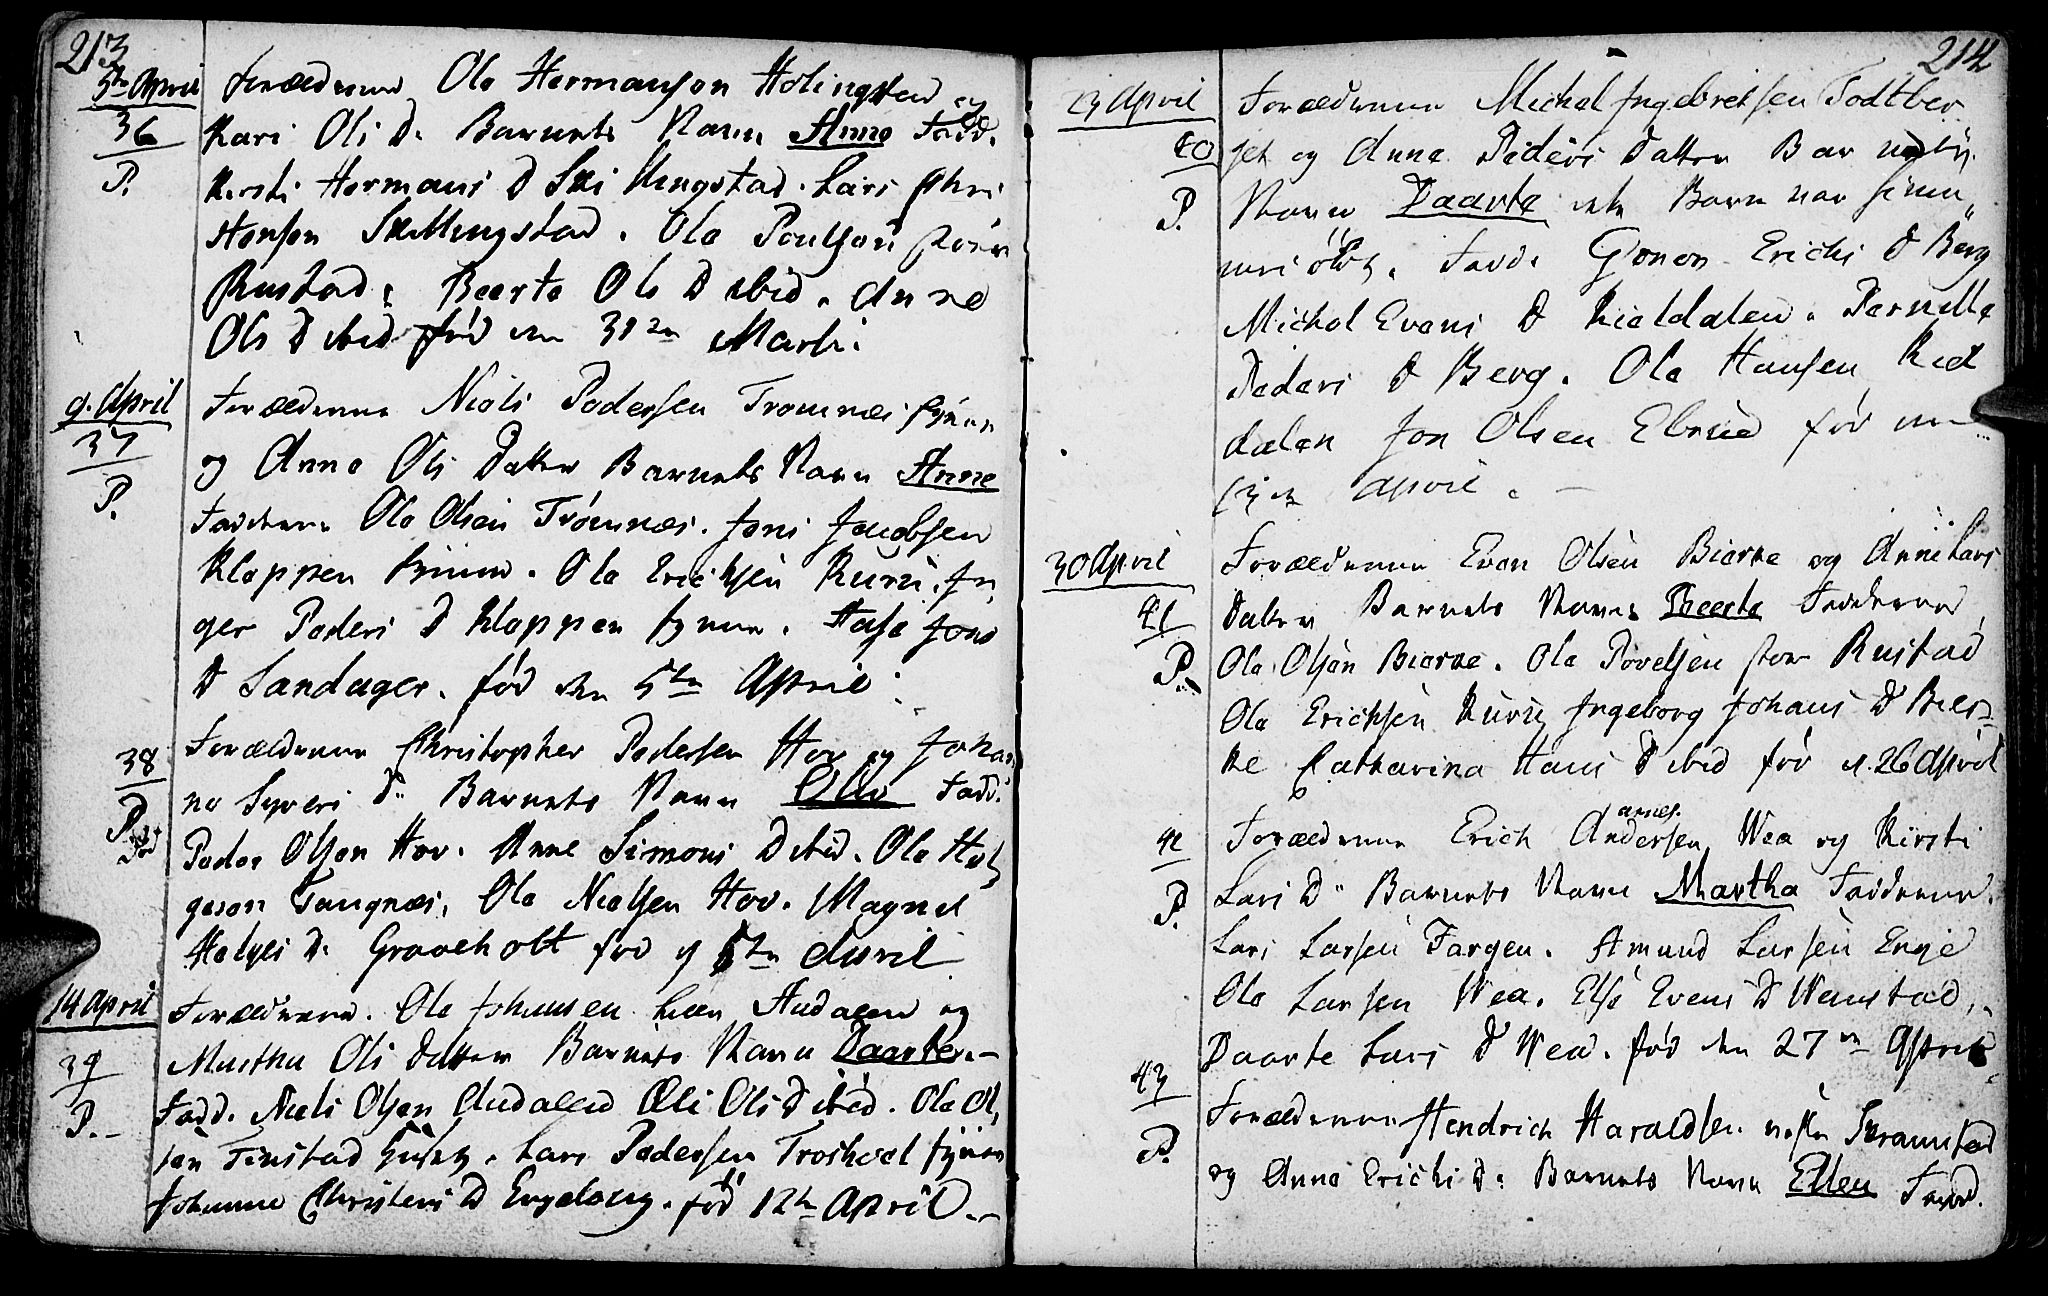 213
5te April
36
P.
Forældrene Ola Hermansøn Holingstad og
Kari Ols D. Barnets Navn Anne Fadd.
Kirsti Hermans D Lars Chri
stensen Skillingstad. Ola Poulsen
Rustad, Beerte Ols D ibid. Anne
Ols D ibid fød den 31te Marti.
9. April
37
P.
Forældrene Niels Pedersen Tromnæs
og Anne Ols Datter Barnets Navn Anne
Fadderne Ola Olsen Tromnæs. Jens Jacobsen
Kloppen. Ola Erichsen Kurud. In
ger Peders D Kloppen. Jens
D Sandager. fød den 5te April
38
P.
Forældrene Christopher Pedersen Hov og Johan
ne Syvers D. Barnets Navn Fadd.
Peder Olsen Hov. Anne Simons D ibid. Ola Hel
geson Tangnæs. Ola Nielsen Hov. Magnil
Helges D. Graveholt fød 5te April
14 April
39
P.
Forældrene. Ola Johansen Audalen og
Martha Ols Datter Barnets Navn Daarte.
Fadd. Niels Olsen Audalen Eli Ols D ibid. Ola Ol
sen Finstad. Lars Pedersen Troshoel
Johanne Christens D Engelaug. fød 12te April.
214
23 April
40
P.
Forældrene Michel Ingebretsen Todtber
get og Anne Peders Datter Barnets
Navn Daarte dette Barn var hjemme
døbt. Fadd. Gonor Erichs D Berg
Michel Evens D Kieldalen. Pernille
Peders D Berg. Ola Hansen Kiel
dalen Jon Olsen fød
April.
30 April
41
P.
Forældrene Even Olsen Bierke og Anne Lars
Datter Barnets Navn Beerte Fadderne
Ola Olsen Bierke. Ola Povelsen Rustad
Ola Erichsen Kurud Ingeborg Johans D Bier
ke Catharina Hans D ibid fød d. 26 April
42
P.
Forældrene Erich Andersen Wea og Kirsti
Lars D. Barnets Navn Martha Fadderne.
Lars Larsen Fargen. Amund Larsen Enge
Ola Larsen Wea. Else Evens D Wenstad,
Daarte Lars D Wea. fød den 27de April
43
P.
Forældrene Hendrich Haraldsen Skramstad
og Anne Erichs D. Barnets Navn Ellen Fadd.